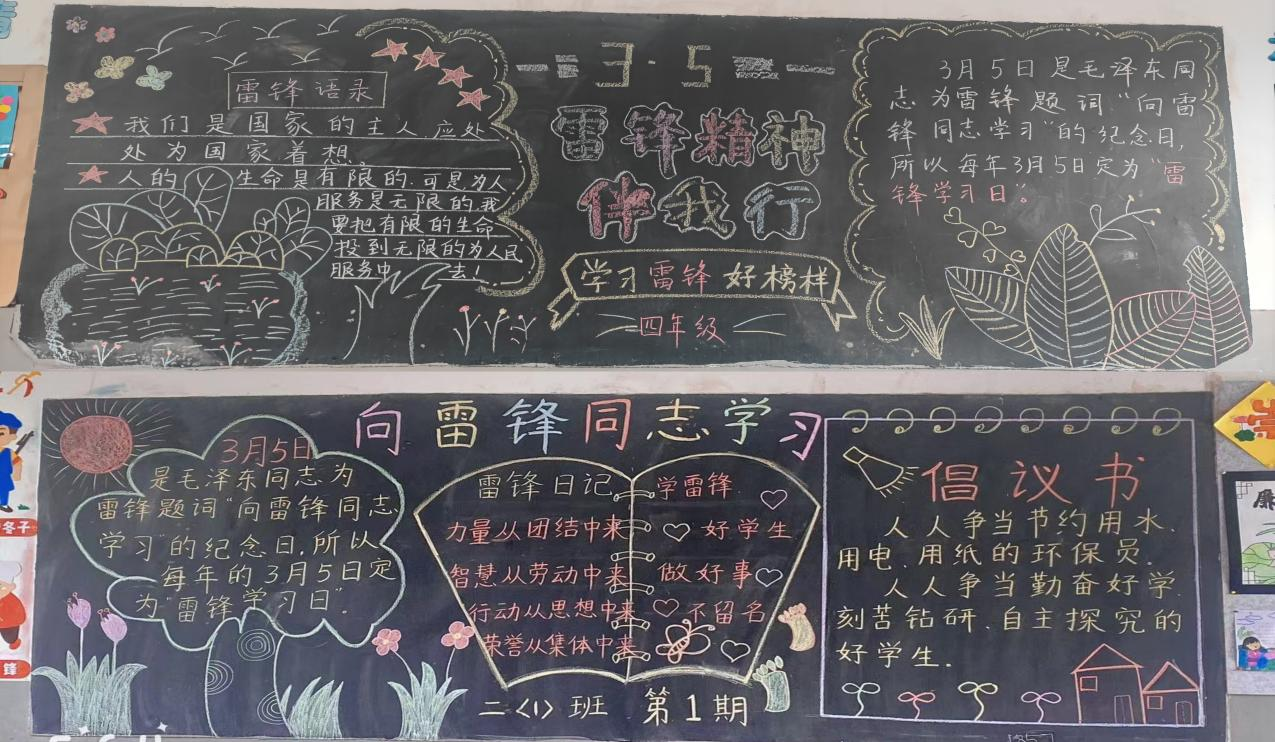 雷锋语录
我们是国家的主人应处
处为国家着想。
人的生命是有限的.可是为人
服务是无限的,我
要把有限的生命
投到无限的为人民
服务中去!
3·5
雷锋精神
伴我行
学习雷锋好榜样
四年级
3月5日是毛泽东同
志为雷锋题词“向雷
锋同志学习”的纪念日,
所以每年3月5日定为“雷
锋学习日”。
向雷锋同志学习
3月5日
是毛泽东同志为
雷锋题词“向雷锋同志
学习”的纪念日,所以
每年的3月5日定
为“雷锋学习日”.
雷锋日记
力量从团结中来
智慧从劳动中来
行动从思想中来
荣誉从集体中来
学雷锋
好学生
做好事
不留名
二<1>班 第1期
倡议书
人人争当节约用水、
用电、用纸的环保员.
人人争当勤奋好学、
刻苦钻研、自主探究的
好学生.
冬子
锋